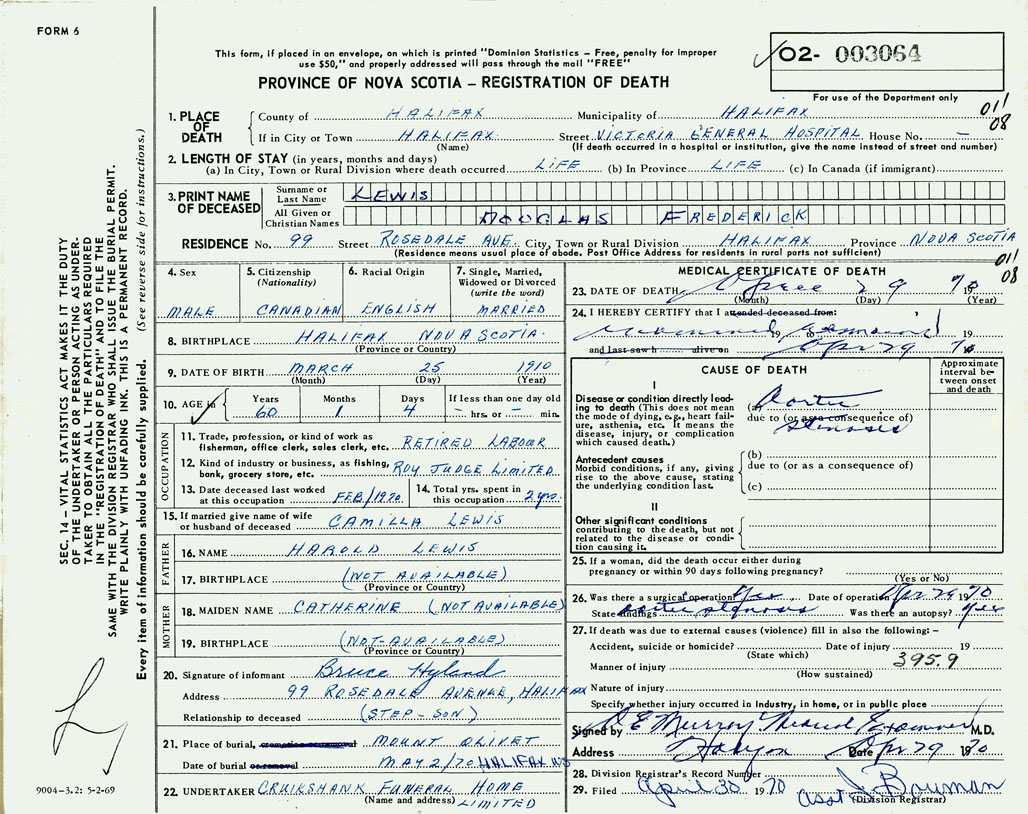 FORM 6
This form, if placed in an envelope, on which is printed "Dominion Statistics – Free, penalty for improper
use $50," and properly addressed will pass through the mail "FREE"
PROVINCE OF NOVA SCOTIA – REGISTRATION OF DEATH
02- 003064
For use of the Department only
011
08
1. PLACE OF DEATH
County of HALIFAX Municipality of HALIFAX
If in City or Town HALIFAX Street VICTORIA GENERAL HOSPITAL House No. –
(Name) (If death occurred in a hospital or institution, give the name instead of street and number)
2. LENGTH OF STAY (in years, months and days)
(a) In City, Town or Rural Division where death occurred LIFE (b) In Province LIFE (c) in Canada (if immigrant)
3. PRINT NAME OF DECEASED
Surname or Last Name LEWIS
All Given or Christian Names DOUGLAS FREDERICK
RESIDENCE No. 99 Street ROSEDALE AVE. City, Town or Rural Division HALIFAX Province NOVA SCOTIA
(Residence means usual place of abode. Post Office Address for residents in rural parts not sufficient)
011
08
4. Sex
MALE
5. Citizenship (Nationality)
CANADIAN
6. Racial Origin
ENGLISH
7. Single, Married, Widowed or Divorced (write the word)
MARRIED
8. BIRTHPLACE HALIFAX NOVA SCOTIA.
(Province or Country)
9. DATE OF BIRTH MARCH 25 1910
(Month) (Day) (Year)
10. AGE in Years 60 Months 1 Days 4 If less than one day old – hrs. or – min.
OCCUPATION
11. Trade, profession, or kind of work as
fisherman, office clerk, sales clerk, etc. RETIRED LABOUR
12. Kind of industry or business, as fishing,
bank, grocery store, etc. ROY JUDGE LIMITED
13. Date deceased last worked
at this occupation FEB/1970
14. Total yrs. spent in
this occupation 2 yrs.
15. If married give name of wife
or husband of deceased CAMILLA LEWIS
FATHER
16. NAME HAROLD LEWIS
17. BIRTHPLACE (NOT AVAILABLE)
(Province or Country)
MOTHER
18. MAIDEN NAME CATHERINE (NOT AVAILABLE)
19. BIRTHPLACE (NOT AVAILABLE)
(Province or Country)
20. Signature of informant Bruce Hyland
Address 99 ROSEDALE AVENUE, HALIFAX
Relationship to deceased (STEP-SON)
21. Place of burial, cremation or removal MOUNT OLIVET
Date of burial or removal MAY 2/70 HALIFAX NS
22. UNDERTAKER CRUIKSHANK FUNERAL HOME
(Name and address) LIMITED
MEDICAL CERTIFICATE OF DEATH
23. DATE OF DEATH April 29 1970
(Month) (Day) (Year)
24. I HEREBY CERTIFY that I attended deceased from:
examined remains
19 to 19
and last saw h alive on Apr 29 1970
CAUSE OF DEATH
Approximate interval between onset and death
I
Disease or condition directly lead-
ing to death (This does not mean
the mode of dying, e.g., heart fail-
ure, asthenia, etc. It means the
disease, injury, or complication
which caused death.)
(a) Aortic
due to (or as a consequence of)
stenosis
Antecedent causes
Morbid conditions, if any, giving
rise to the above cause, stating
the underlying condition last.
(b)
due to (or as a consequence of)
(c)
II
Other significant conditions
contributing to the death, but not
related to the disease or condi-
tion causing it.
25. If a woman, did the death occur either during
pregnancy or within 90 days following pregnancy?
(Yes or No)
26. Was there a surgical operation? Yes Date of operation Apr 29 1970
State findings aortic stenosis Was there an autopsy? Yes
27. If death was due to external causes (violence) fill in also the following: –
Accident, suicide or homicide? Date of injury 19
(State which)
Manner of injury 395.9
(How sustained)
Nature of injury
Specify whether injury occurred in industry, in home, or in public place
Signed by D E Murray Medical Examiner M.D.
Address Date Apr 29 1970
28. Division Registrar's Record Number
29. Filed April 30 1970 Asst J Bowman
(Division Registrar)
SEC. 14 – VITAL STATISTICS ACT MAKES IT THE DUTY
OF THE UNDERTAKER OR PERSON ACTING AS UNDER-
TAKER TO OBTAIN ALL THE PARTICULARS REQUIRED
IN THE "REGISTRATION OF DEATH" AND TO FILE THE
SAME WITH THE DIVISION REGISTRAR WHO SHALL ISSUE THE BURIAL PERMIT.
WRITE PLAINLY WITH UNFADING INK. THIS IS A PERMANENT RECORD.
Every item of information should be carefully supplied. (See reverse side for instructions.)
9004–3.2: 5-2-69